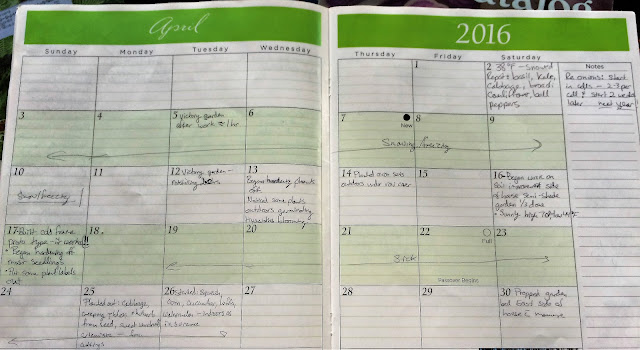 April
2016
Sunday Monday Tuesday Wednesday
Thursday Friday Saturday
Notes
1
2 38°F - Snowed
Repot basil, kale,
Cabbage, broccoli
Cauliflower, bell
peppers
Re onions: start
in cells - 2-3 per
cell & start 2 weeks
later next year
3
4
5 Victory garden
after work ≈ 1 hr
6
7
New
8
9
Snowing/freezing
10
Snow/freezing
11
12 Victory garden -
13
Began hardening plants
off
Noticed some plants
outdoors germinating
Hyacinths blooming
14 Planted onion sets
outdoors under row cover
15
16 - Began work on
soil improvement side
of house semi-shade
garden 1/2 done
Sunny high 70°F/low 45°F
17 - Built cold frame
proto type - it works!!
Began hardening off
more seedlings
Put some plant labels
out
18
19
20
21
Sick
22
Full
Passover Begins
23
24
25
Planted out: Cabbage,
creeping thyme, rhubarb
from seed, sweet
26 Started: Squash,
corn, cucumber,
watermelon - indoors or
in sunroom
27
28
29
30 Prepped garden
bed East side of
house